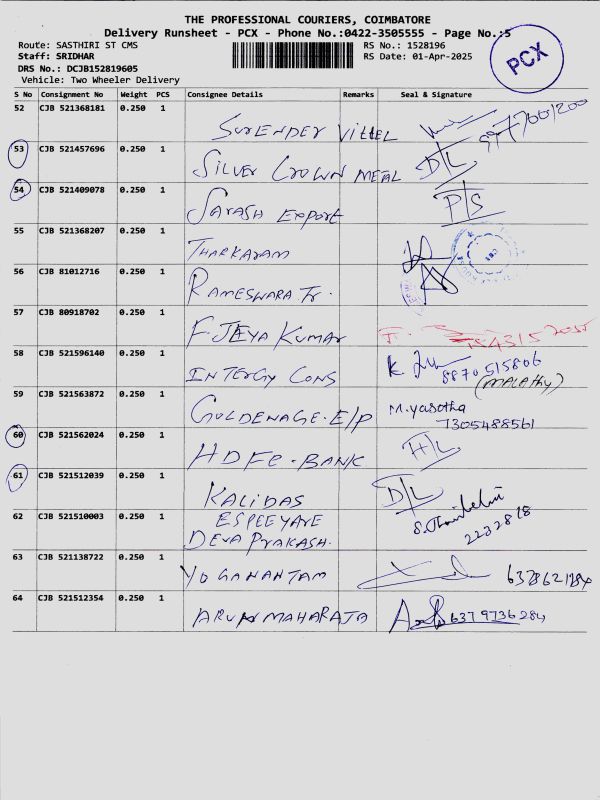 THE PROFESSIONAL COURIERS, COIMBATORE
Delivery Runsheet - PCX - Phone No.:0422-3505555 - Page No.:5
Route: SASTHIRI ST CMS RS No.: 1528196
Staff: SRIDHAR RS Date: 01-Apr-2025
DRS No.: DCJB152819605
Vehicle: Two Wheeler Delivery
PCX
S No Consignment No Weight PCS Consignee Details Remarks Seal & Signature
52 CJB 521368181 0.250 1 SURENDER VITTEL
53 CJB 521457696 0.250 1 SILVER CROWN METAL D/L
54 CJB 521409078 0.250 1 SARASH Export P/S
55 CJB 521368207 0.250 1 THARKARAM
56 CJB 81012716 0.250 1 RAMESWARA Tr.
57 CJB 80918702 0.250 1 F. JEYA KUMAR
58 CJB 521596140 0.250 1 INTERGY CONS 8870515806
(MALATHY)
59 CJB 521563872 0.250 1 GOLDENAGE. E/P M.yasotha
7305488561
60 CJB 521562024 0.250 1 HDFC - BANK H/L
61 CJB 521512039 0.250 1 KALIDAS D/L
62 CJB 521510003 0.250 1 ESPEEYARE
DEVA PRAKASH. 2232818
63 CJB 521138722 0.250 1 YOGANANTAM 6378621284
64 CJB 521512354 0.250 1 ARUN MAHARAJA 6379736284